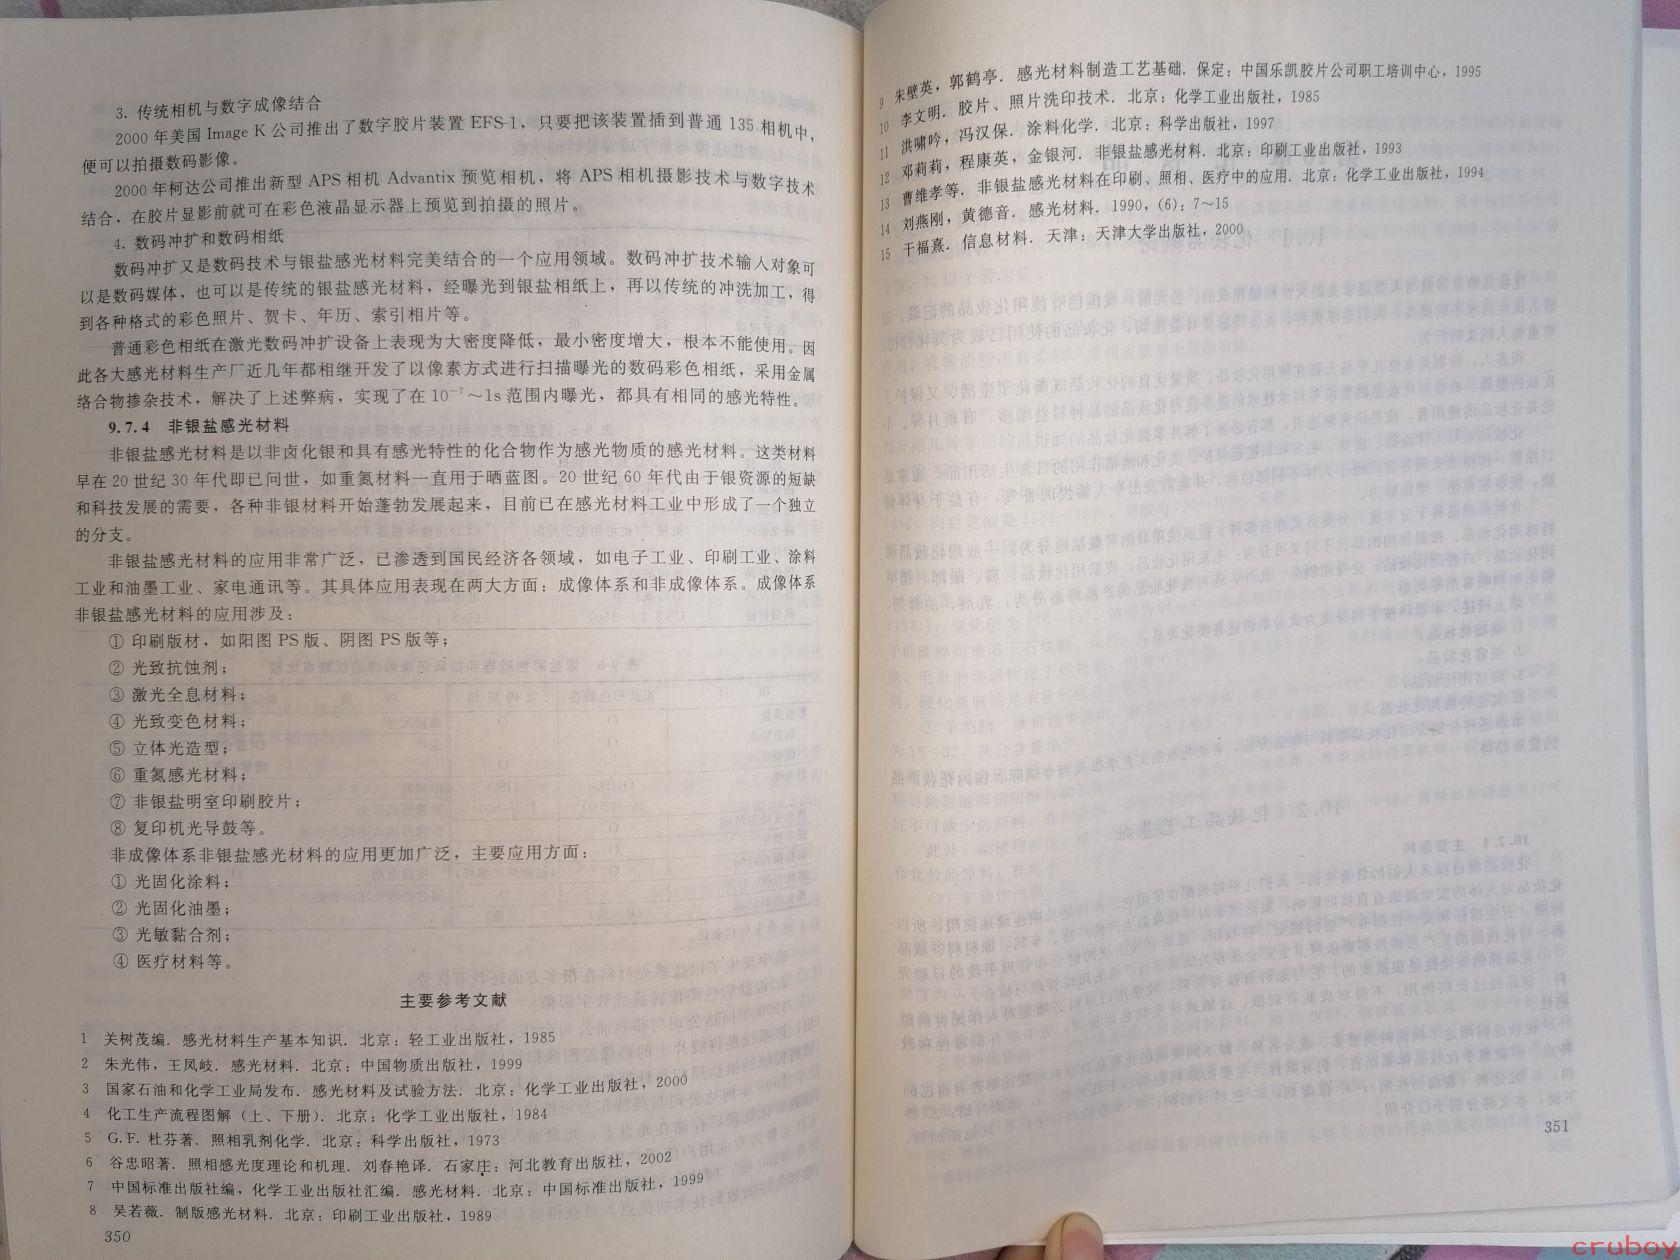 3. 传统相机与数字成像结合
2000 年美国 Image K 公司推出了数字胶片装置 EFS-1，只要把该装置插到普通 135 相机中，
便可以拍摄数码影像。
2000 年柯达公司推出新型 APS 相机 Advantix 预览相机，将 APS 相机摄影技术与数字技术
结合，在胶片显影前就可在彩色液晶显示器上预览到拍摄的照片。
4. 数码冲扩和数码相纸
数码冲扩又是数码技术与银盐感光材料完美结合的一个应用领域。数码冲扩技术输入对象可
以是数码媒体，也可以是传统的银盐感光材料，经曝光到银盐相纸上，再以传统的冲洗加工，得
到各种格式的彩色照片、贺卡、年历、索引相片等。
普通彩色相纸在激光数码冲扩设备上表现为大密度降低，最小密度增大，根本不能使用。因
此各大感光材料生产厂近几年都相继开发了以像素方式进行扫描曝光的数码彩色相纸，采用金属
络合物掺杂技术，解决了上述弊病，实现了在 10⁻⁷～1s 范围内曝光，都具有相同的感光特性。
9.7.4 非银盐感光材料
非银盐感光材料是以非卤化银和具有感光特性的化合物作为感光物质的感光材料。这类材料
早在 20 世纪 30 年代即已问世，如重氮材料一直用于晒蓝图。20 世纪 60 年代由于银资源的短缺
和科技发展的需要，各种非银材料开始蓬勃发展起来，目前已在感光材料工业中形成了一个独立
的分支。
非银盐感光材料的应用非常广泛，已渗透到国民经济各领域，如电子工业、印刷工业、涂料
工业和油墨工业、家电通讯等。其具体应用表现在两大方面：成像体系和非成像体系。成像体系
非银盐感光材料的应用涉及：
① 印刷版材，如阳图 PS 版、阴图 PS 版等；
② 光致抗蚀剂；
③ 激光全息材料；
④ 光致变色材料；
⑤ 立体光造型；
⑥ 重氮感光材料；
⑦ 非银盐明室印刷胶片；
⑧ 复印机光导鼓等。
非成像体系非银盐感光材料的应用更加广泛，主要应用方面：
① 光固化涂料；
② 光固化油墨；
③ 光敏黏合剂；
④ 医疗材料等。
主要参考文献
1 关树茂编．感光材料生产基本知识．北京：轻工业出版社，1985
2 朱光伟，王凤岐．感光材料．北京：中国物质出版社，1999
3 国家石油和化学工业局发布．感光材料及试验方法．北京：化学工业出版社，2000
4 化工生产流程图解（上、下册）．北京：化学工业出版社，1984
5 G.F. 杜芬著．照相乳剂化学．北京：科学出版社，1973
6 谷忠昭著．照相感光度理论和机理．刘春艳译．石家庄：河北教育出版社，2002
7 中国标准出版社编，化学工业出版社汇编．感光材料．北京：中国标准出版社，1999
8 吴若薇．制版感光材料．北京：印刷工业出版社，1989
350
9 朱壁英，郭鹤亭．感光材料制造工艺基础．保定：中国乐凯胶片公司职工培训中心，1995
10 李文明．胶片、照片洗印技术．北京：化学工业出版社，1985
11 洪啸吟，冯汉保．涂料化学．北京：科学出版社，1997
12 邓莉莉，程康英，金银河．非银盐感光材料．北京：印刷工业出版社，1993
13 曹维孝等．非银盐感光材料在印刷、照相、医疗中的应用．北京：化学工业出版社，1994
14 刘燕刚，黄德音．感光材料．1990，(6)：7～15
15 干福熹．信息材料．天津：天津大学出版社，2000
351
cruboy